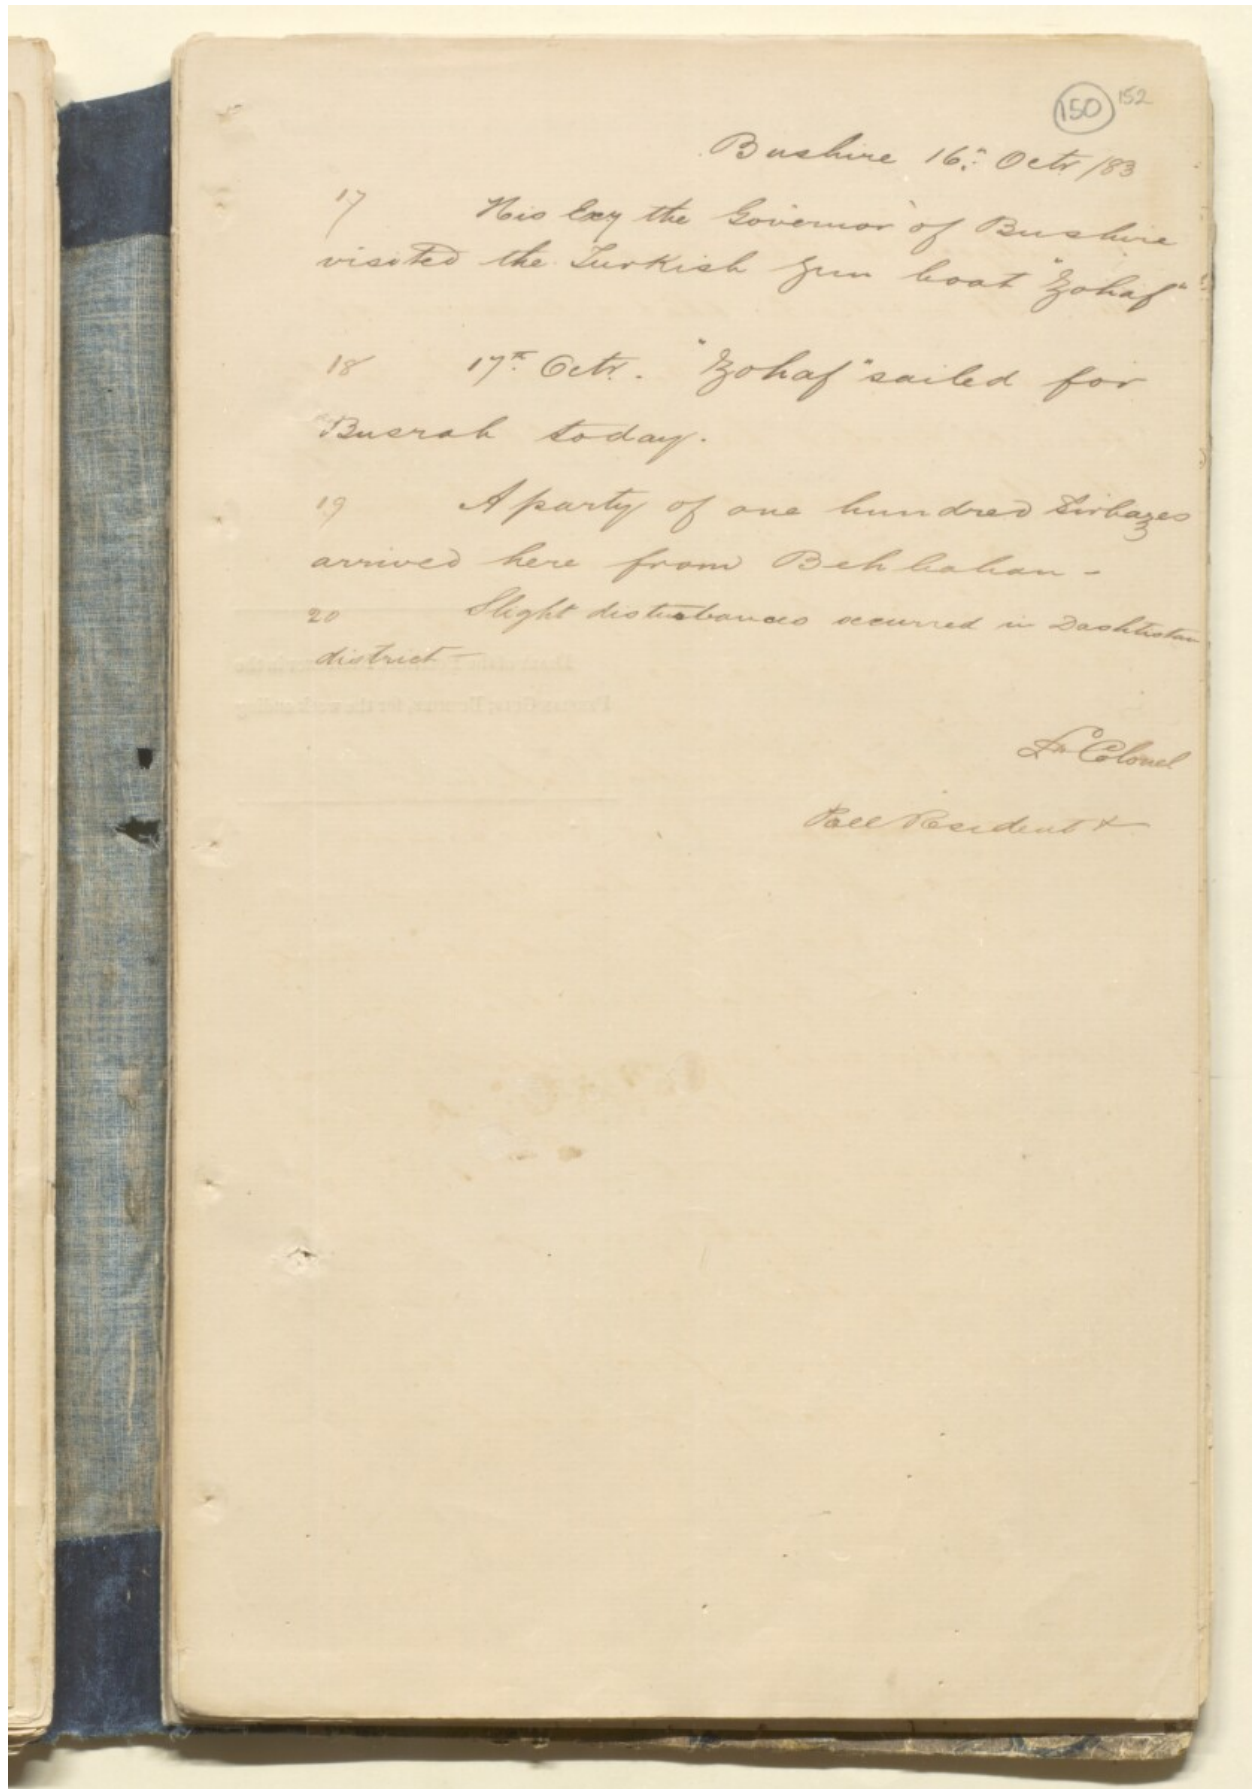 150 152
Bushire 16th Octr /83
17 His Exy the Governor of Bushire
visited the Turkish gun boat "Zohaf"
18 17th Octr. "Zohaf" sailed for
Busrah today.
19 A party of one hundred Sirbazes
arrived here from Behbahan -
20 Slight disturbances occurred in Dashtistan
district -
Lt Colonel
Poll Resident &